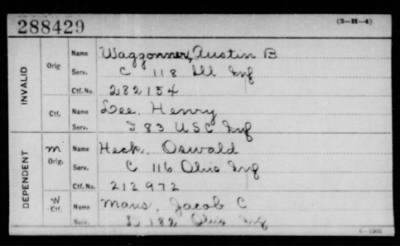 288429 (3-H-4)
INVALID
Orig Name Waggonner, Austin B
Serv. C 118 Ill Inf
Ctf. No. 282154
Ctf. Name Lee. Henry
Serv. 83 USC Inf
DEPENDENT
m Orig. Name Heck. Oswald
Serv. C 116 Ohio Inf
Ctf. No. 212972
W Ctf. Name Maus, Jacob C
Serv. 182 Ohio Inf